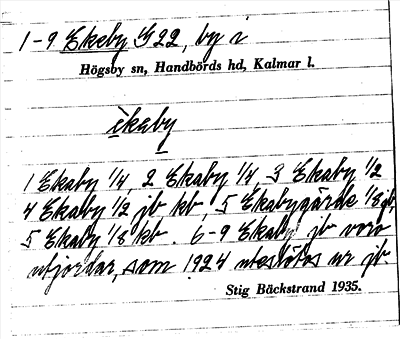 1-9 Ekeby G22, by i
Högsby sn, Handbörds hd, Kalmar l.
èkaby
1 Ekaby 1/4, 2 Ekaby 1/4, 3 Ekaby 1/2
4 Ekaby 1/2 jb kb, 5 Ekabygärde 1/8 jb,
5 Ekaby 1/8 kb. 6-9 Ekaby jb voro
utjordar, som 1924 uteslötos ur jb.
Stig Bäckstrand 1935.